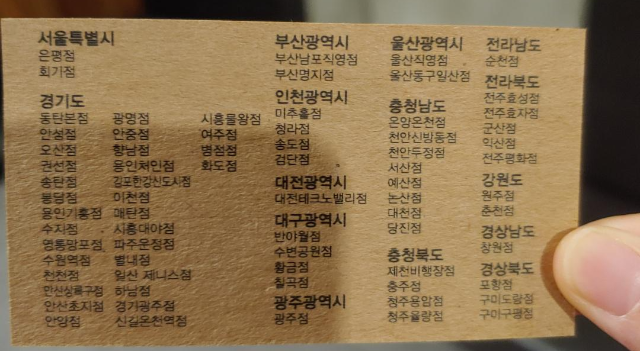 서울특별시
은평점
회기점
경기도
동탄본점
안성점
오산점
권선점
송탄점
봉담점
용인기흥점
수지점
영통망포점
수원역점
천천점
안산상록구점
안산초지점
안양점
광명점
안중점
향남점
용인처인점
김포한강신도시점
이천점
매탄점
시흥대야점
파주운정점
별내점
일산 제니스점
하남점
경기광주점
신길온천역점
시흥물왕점
여주점
병점점
화도점
부산광역시
부산남포직영점
부산명지점
인천광역시
미추홀점
청라점
송도점
검단점
대전광역시
대전테크노밸리점
대구광역시
반야월점
수변공원점
황금점
칠곡점
광주광역시
광주점
울산광역시
울산직영점
울산동구일산점
충청남도
온양온천점
천안신방동점
천안두정점
서산점
예산점
논산점
대천점
당진점
충청북도
제천비행장점
충주점
청주용암점
청주율량점
전라남도
순천점
전라북도
전주효성점
전주효자점
군산점
익산점
전주평화점
강원도
원주점
춘천점
경상남도
창원점
경상북도
포항점
구미도량점
구미구평점